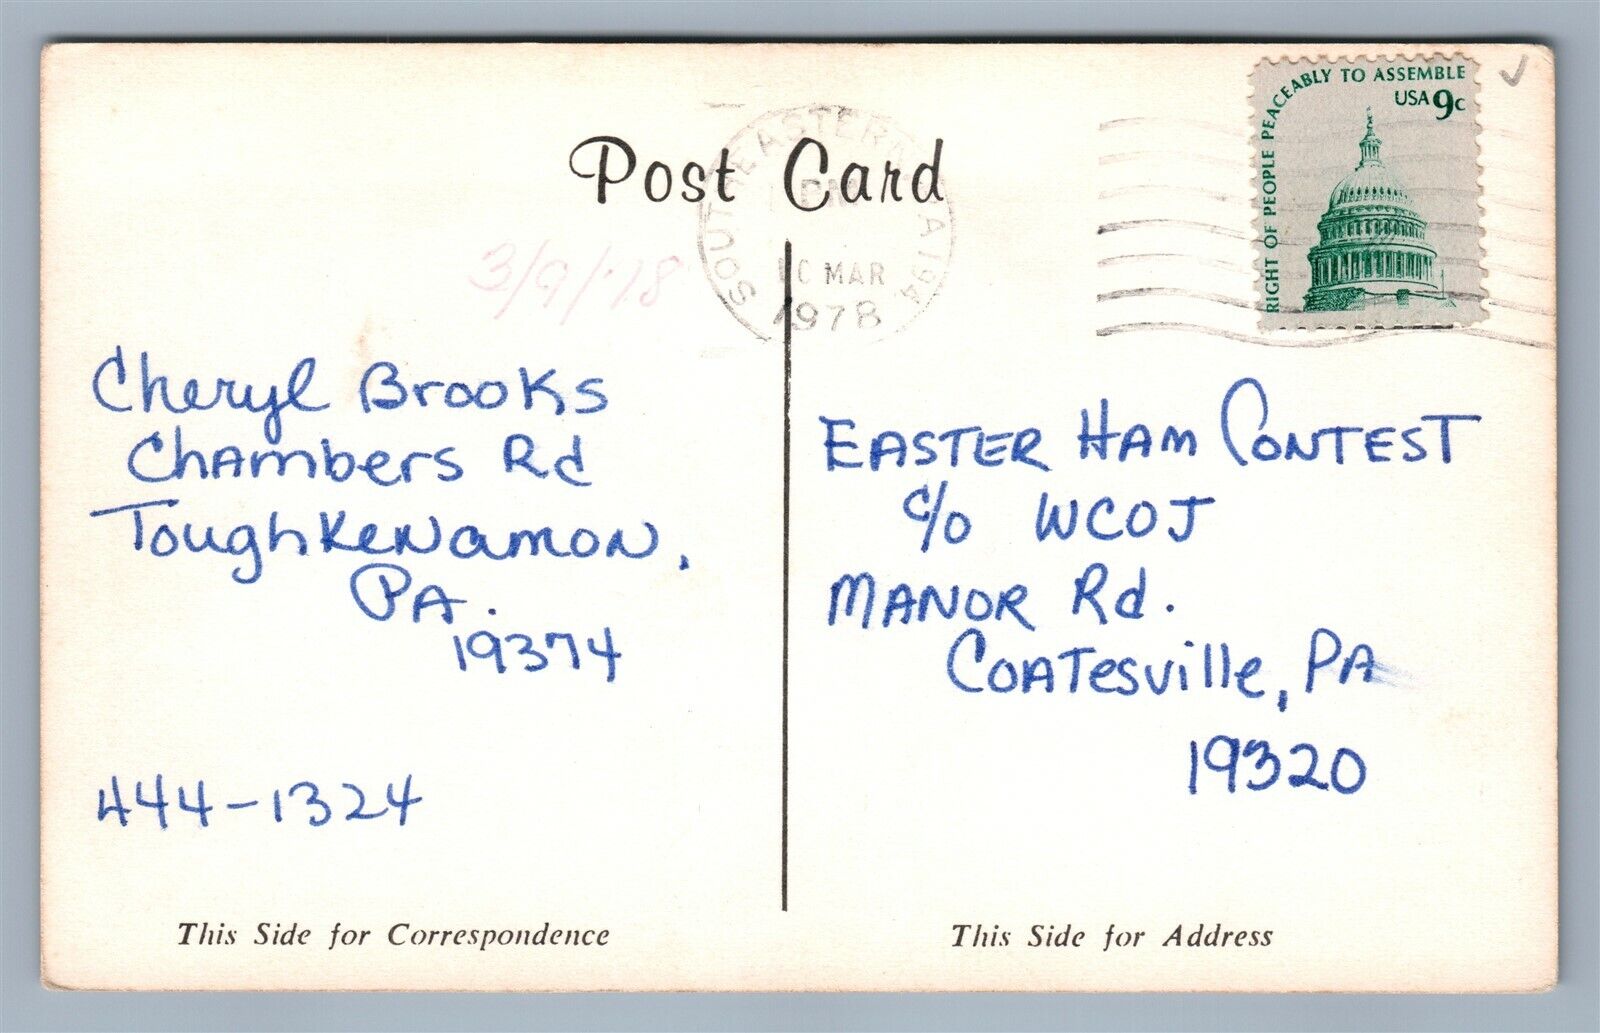 RIGHT OF PEOPLE PEACEABLY TO ASSEMBLE
USA 9c
Post Card
SOUTHEASTERN PA 194
PM
10 MAR
1978
3/9/78
Cheryl Brooks
Chambers Rd
Toughkenamon,
PA.
19374
444-1324
This Side for Correspondence
EASTER HAM CONTEST
c/o WCOJ
MANOR Rd.
COATesville, PA
19320
This Side for Address